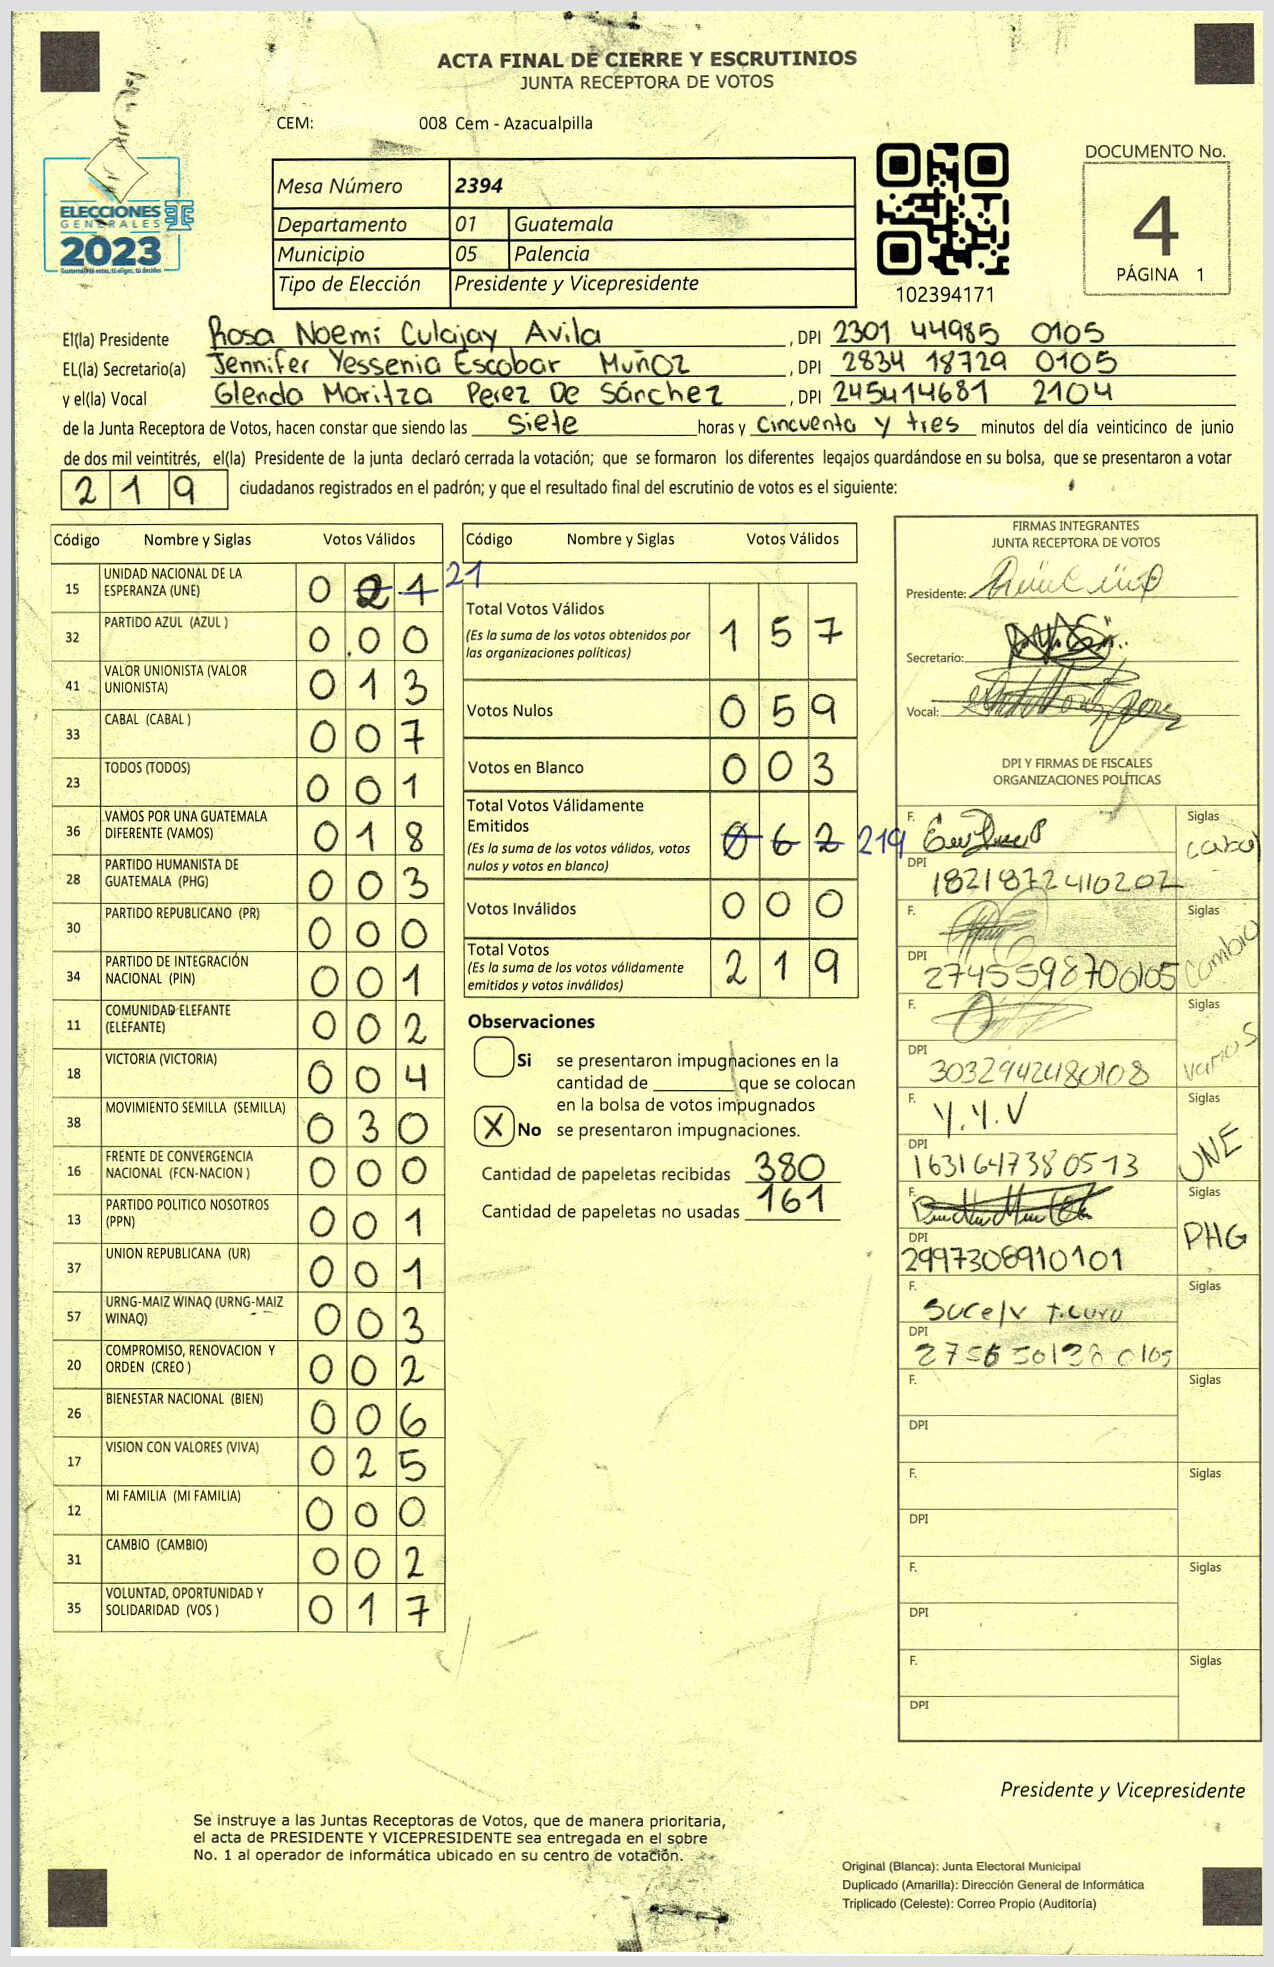 ACTA FINAL DE CIERRE Y ESCRUTINIOS
JUNTA RECEPTORA DE VOTOS
CEM: 008 Cem - Azacualpilla
ELECCIONES
GENERALES
2023
Mesa Número 2394
Departamento 01 Guatemala
Municipio 05 Palencia
Tipo de Elección Presidente y Vicepresidente
102394171
DOCUMENTO No.
4
PÁGINA 1
El(la) Presidente Rosa Noemí Culajay Avila , DPI 2301 44985 0105
EL(la) Secretario(a) Jennifer Yessenia Escobar Muñoz , DPI 2834 18729 0105
y el(la) Vocal Glenda Maritza Perez De Sánchez , DPI 245414681 2104
de la Junta Receptora de Votos, hacen constar que siendo las siete horas y cincuenta y tres minutos del día veinticinco de junio
de dos mil veintitrés, el(la) Presidente de la junta declaró cerrada la votación; que se formaron los diferentes legajos guardándose en su bolsa, que se presentaron a votar
219 ciudadanos registrados en el padrón; y que el resultado final del escrutinio de votos es el siguiente:
Código Nombre y Siglas Votos Válidos
15 UNIDAD NACIONAL DE LA ESPERANZA (UNE) 0 2 1 21
32 PARTIDO AZUL (AZUL ) 0 0 0
41 VALOR UNIONISTA (VALOR UNIONISTA) 0 1 3
33 CABAL (CABAL ) 0 0 7
23 TODOS (TODOS) 0 0 1
36 VAMOS POR UNA GUATEMALA DIFERENTE (VAMOS) 0 1 8
28 PARTIDO HUMANISTA DE GUATEMALA (PHG) 0 0 3
30 PARTIDO REPUBLICANO (PR) 0 0 0
34 PARTIDO DE INTEGRACIÓN NACIONAL (PIN) 0 0 1
11 COMUNIDAD ELEFANTE (ELEFANTE) 0 0 2
18 VICTORIA (VICTORIA) 0 0 4
38 MOVIMIENTO SEMILLA (SEMILLA) 0 3 0
16 FRENTE DE CONVERGENCIA NACIONAL (FCN-NACION ) 0 0 0
13 PARTIDO POLITICO NOSOTROS (PPN) 0 0 1
37 UNION REPUBLICANA (UR) 0 0 1
57 URNG-MAIZ WINAQ (URNG-MAIZ WINAQ) 0 0 3
20 COMPROMISO, RENOVACION Y ORDEN (CREO ) 0 0 2
26 BIENESTAR NACIONAL (BIEN) 0 0 6
17 VISION CON VALORES (VIVA) 0 2 5
12 MI FAMILIA (MI FAMILIA) 0 0 0
31 CAMBIO (CAMBIO) 0 0 2
35 VOLUNTAD, OPORTUNIDAD Y SOLIDARIDAD (VOS ) 0 1 7
Código Nombre y Siglas Votos Válidos
Total Votos Válidos 1 5 7
(Es la suma de los votos obtenidos por
las organizaciones políticas)
Votos Nulos 0 5 9
Votos en Blanco 0 0 3
Total Votos Válidamente
Emitidos 0 6 2 219
(Es la suma de los votos válidos, votos
nulos y votos en blanco)
Votos Inválidos 0 0 0
Total Votos 2 1 9
(Es la suma de los votos válidamente
emitidos y votos inválidos)
Observaciones
Si se presentaron impugnaciones en la
cantidad de ________ que se colocan
en la bolsa de votos impugnados
X No se presentaron impugnaciones.
Cantidad de papeletas recibidas 380
Cantidad de papeletas no usadas 161
FIRMAS INTEGRANTES
JUNTA RECEPTORA DE VOTOS
Presidente:
Secretario:
Vocal:
DPI Y FIRMAS DE FISCALES
ORGANIZACIONES POLÍTICAS
F. Siglas cabal
DPI 1821872410202
F. Siglas Cambio
DPI 2745598700105
F. Siglas vamos
DPI 3032942480108
F. Y.Y.V Siglas UNE
DPI 1631647380513
F. Siglas PHG
DPI 2997308910101
F. Siglas
DPI
F. Siglas
DPI
F. Siglas
DPI
F. Siglas
DPI
F. Siglas
DPI
Presidente y Vicepresidente
Se instruye a las Juntas Receptoras de Votos, que de manera prioritaria,
el acta de PRESIDENTE Y VICEPRESIDENTE sea entregada en el sobre
No. 1 al operador de informática ubicado en su centro de votación.
Original (Blanca): Junta Electoral Municipal
Duplicado (Amarilla): Dirección General de Informática
Triplicado (Celeste): Correo Propio (Auditoría)